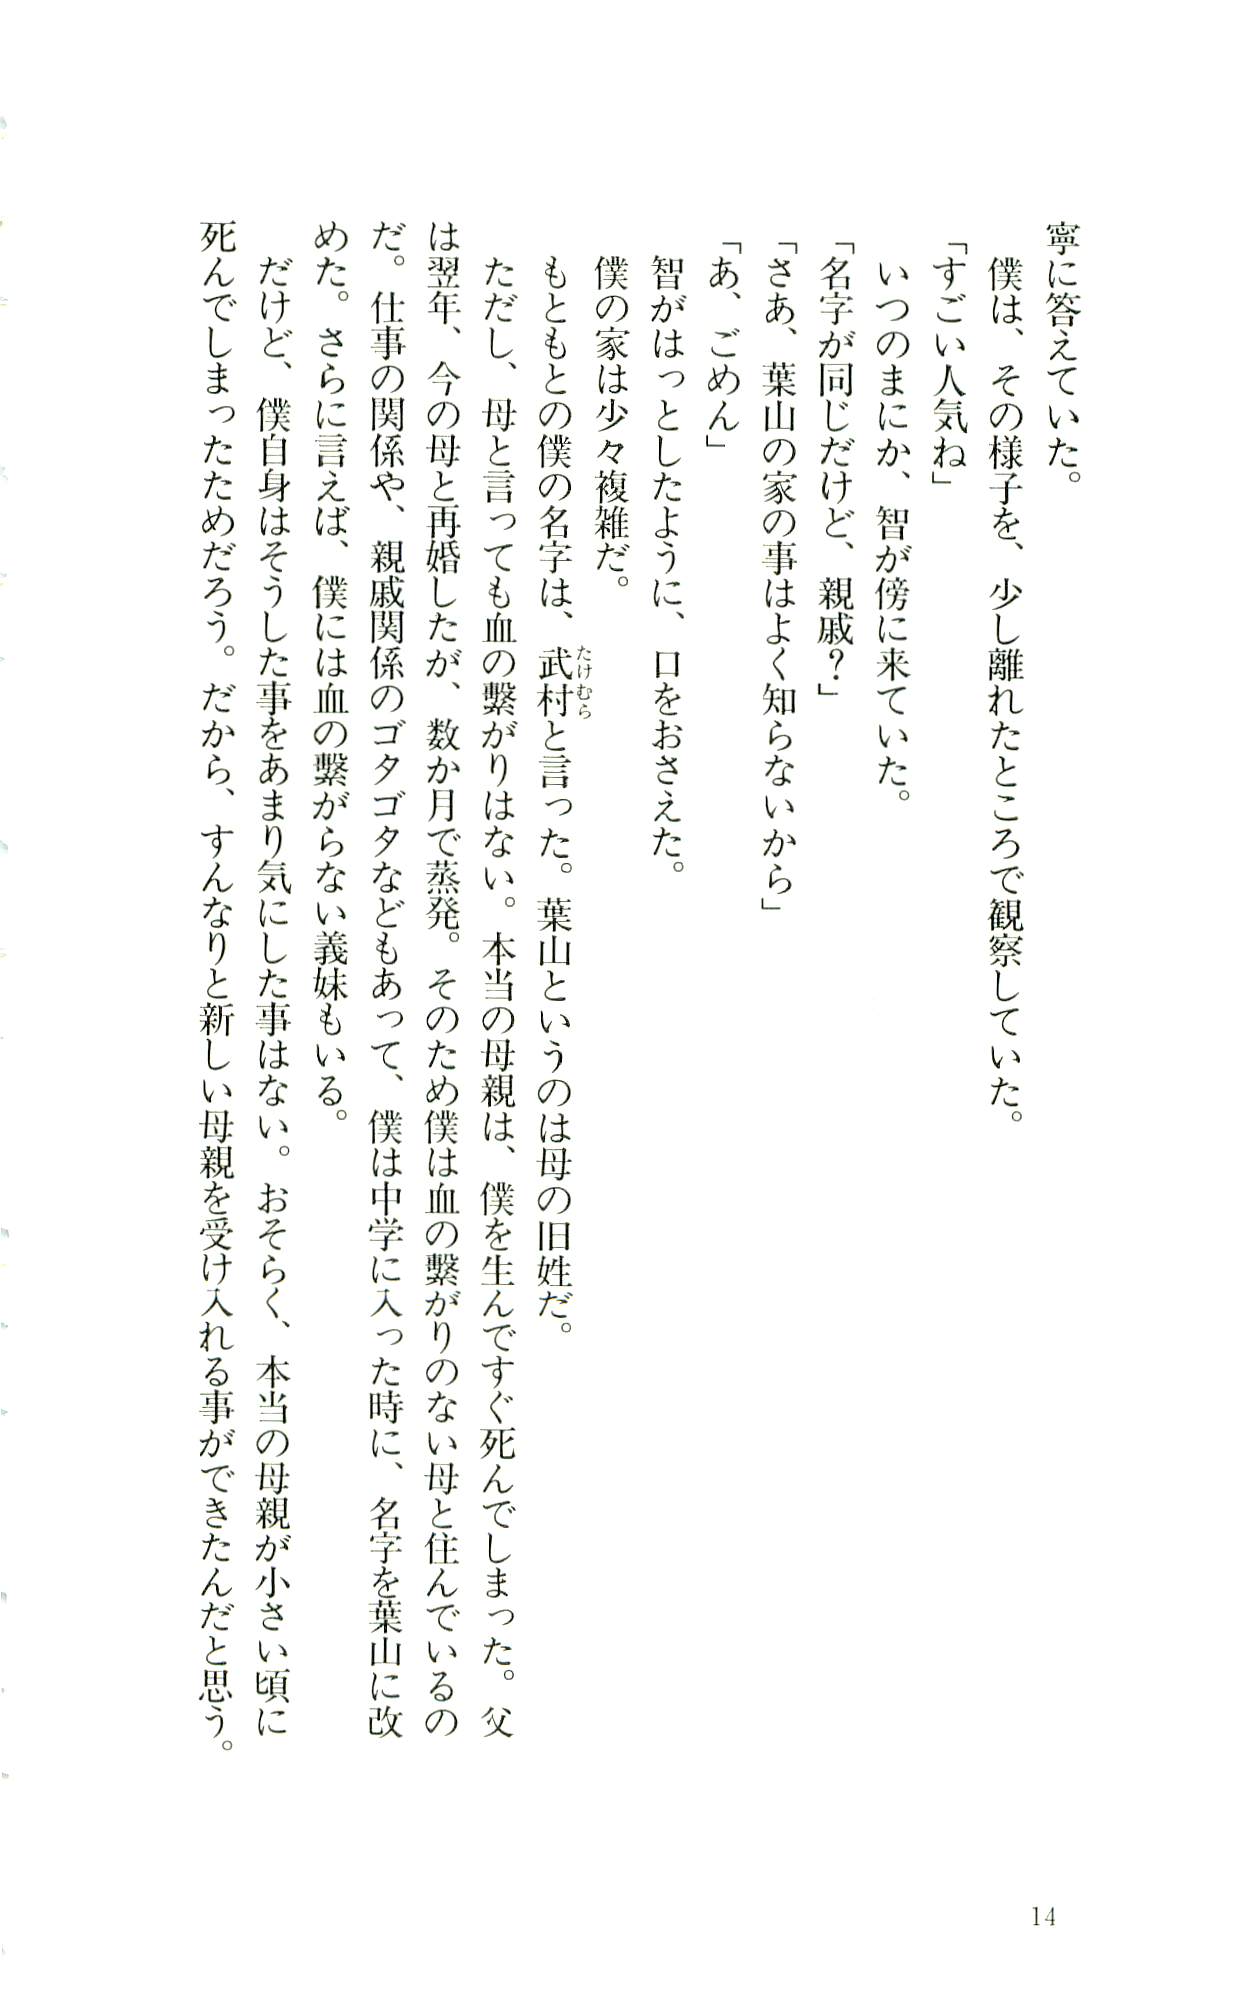 寧に答えていた。
　僕は、その様子を、少し離れたところで観察していた。
「すごい人気ね」
　いつのまにか、智が傍に来ていた。
「名字が同じだけど、親戚？」
「さあ、葉山の家の事はよく知らないから」
「あ、ごめん」
　智がはっとしたように、口をおさえた。
　僕の家は少々複雑だ。
　もともとの僕の名字は、武村と言った。葉山というのは母の旧姓だ。
たけむら
　ただし、母と言っても血の繫がりはない。本当の母親は、僕を生んですぐ死んでしまった。父
は翌年、今の母と再婚したが、数か月で蒸発。そのため僕は血の繫がりのない母と住んでいるの
だ。仕事の関係や、親戚関係のゴタゴタなどもあって、僕は中学に入った時に、名字を葉山に改
めた。さらに言えば、僕には血の繫がらない義妹もいる。
　だけど、僕自身はそうした事をあまり気にした事はない。おそらく、本当の母親が小さい頃に
死んでしまったためだろう。だから、すんなりと新しい母親を受け入れる事ができたんだと思う。
14